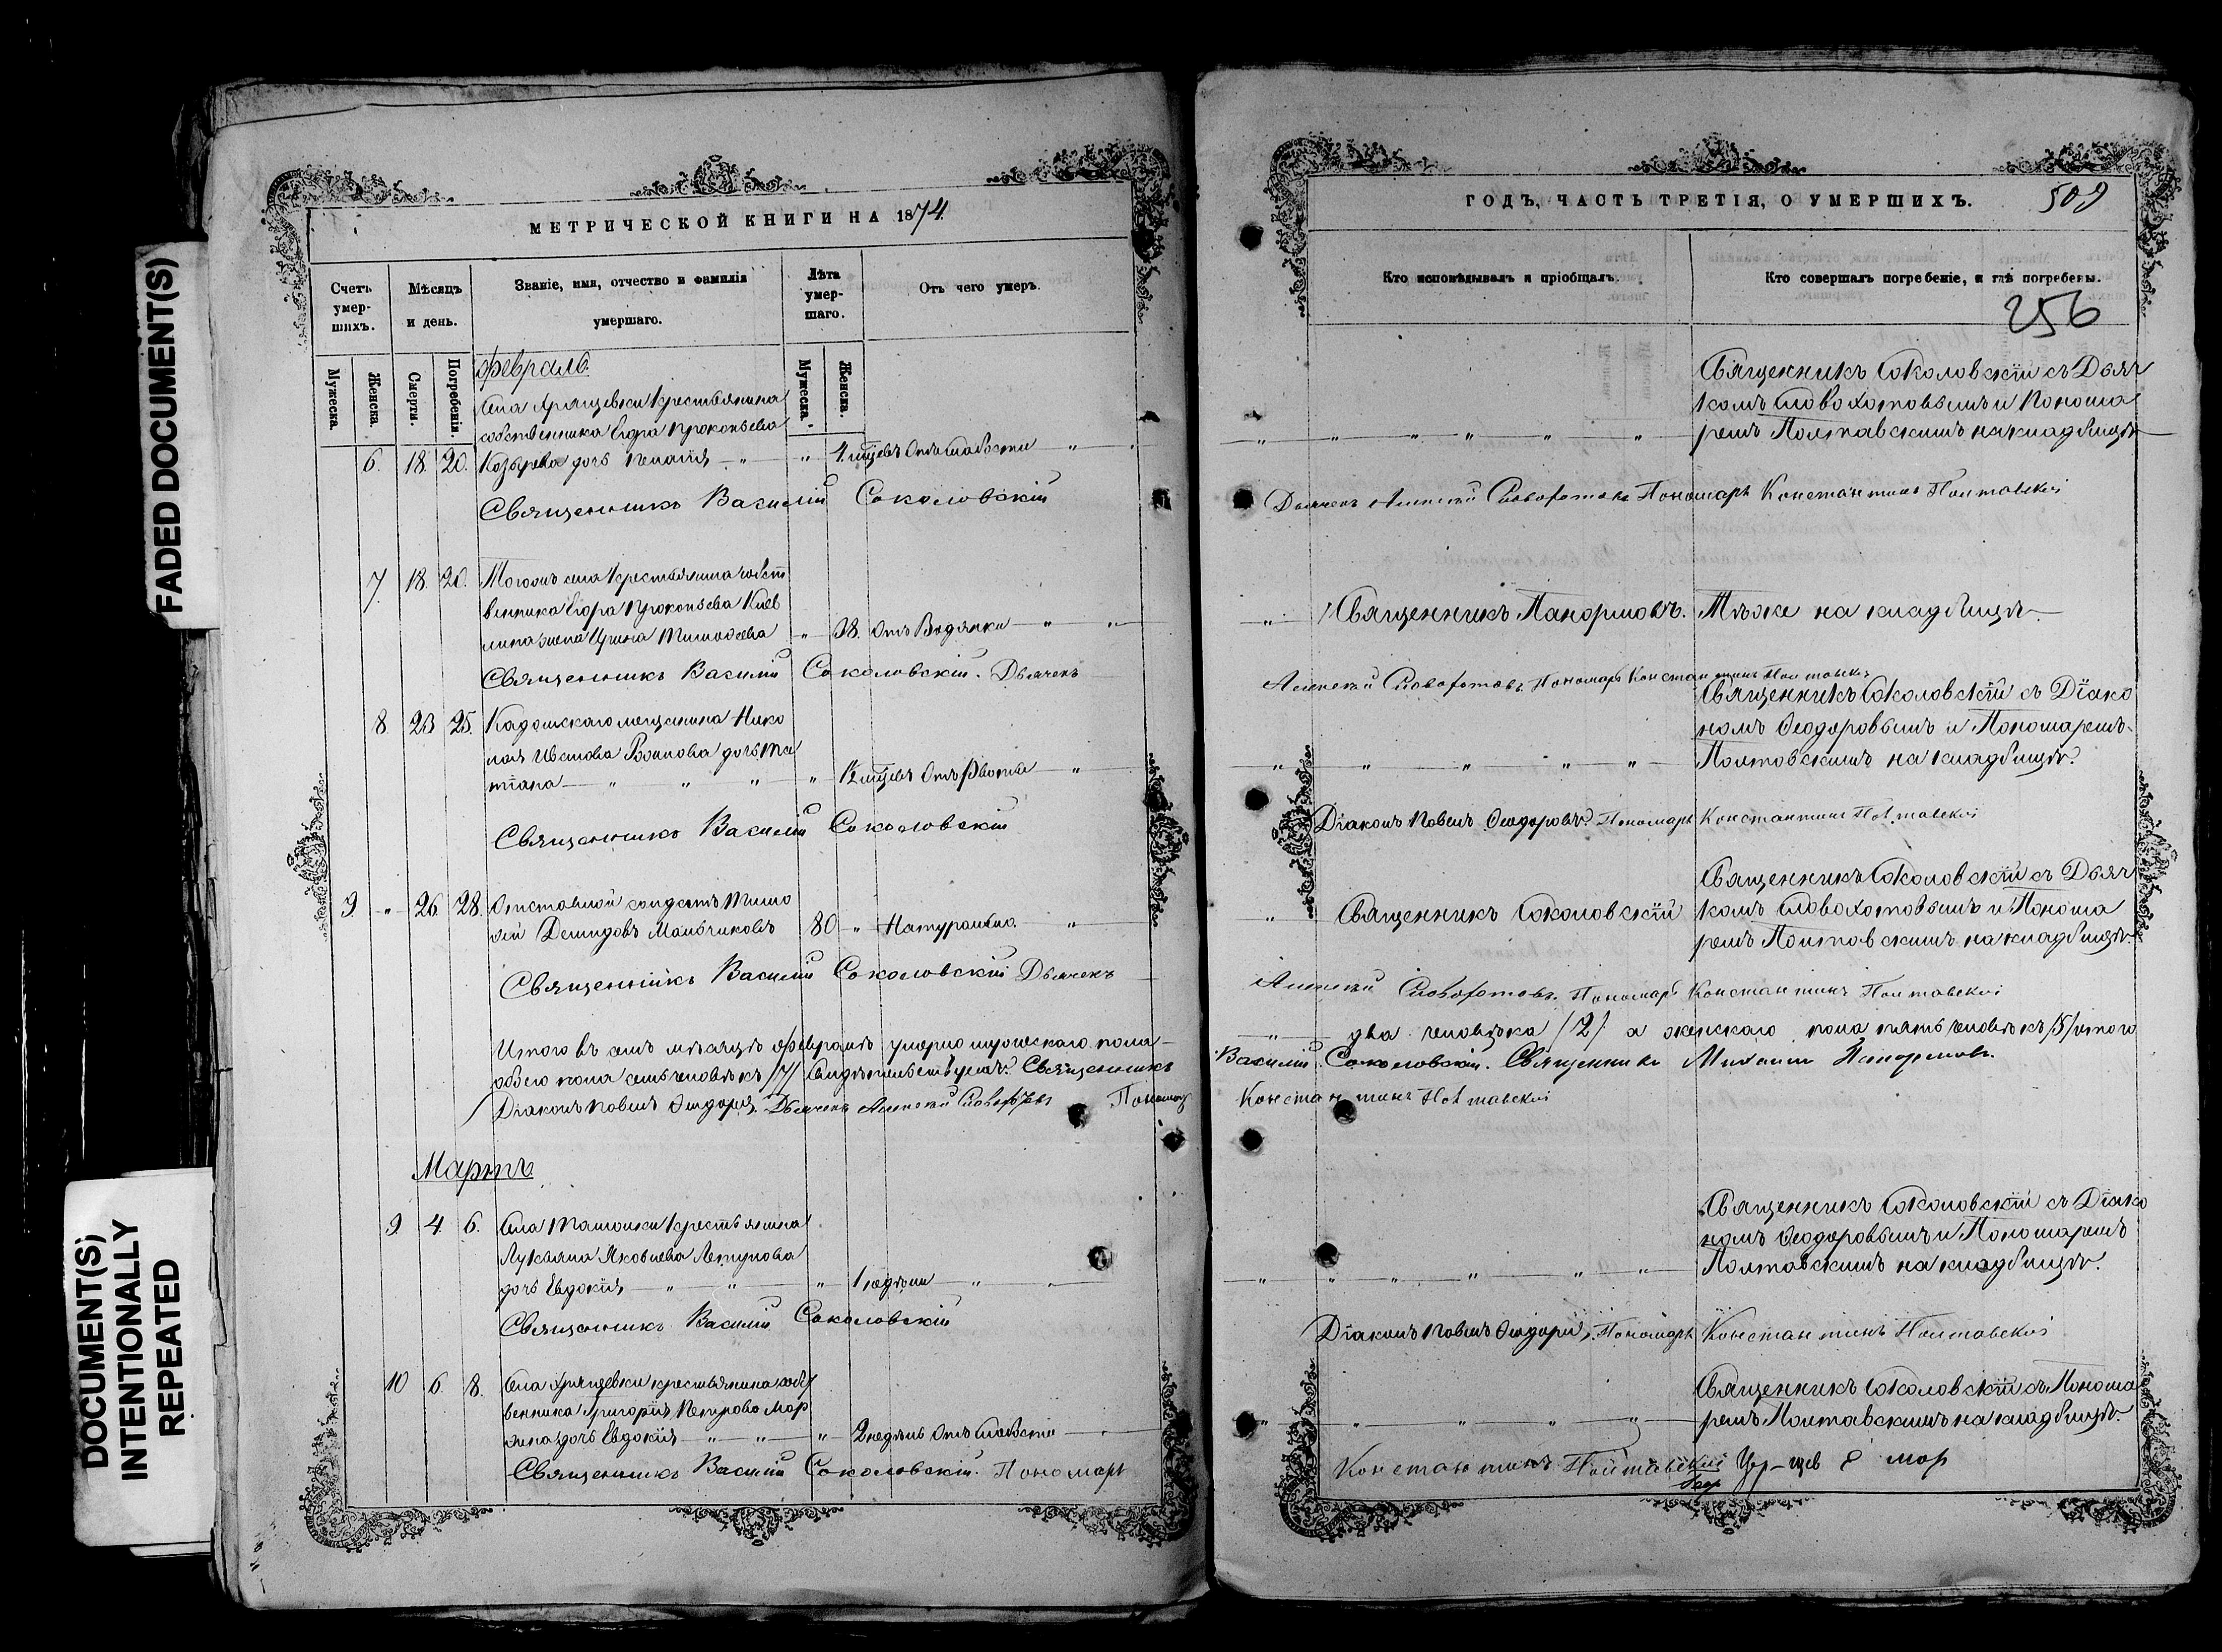 FADED DOCUMENT(S)
DOCUMENT(S) INTENTIONALLY REPEATED
МЕТРИЧЕСКОЙ КНИГИ НА 1874.
Счетъ умершихъ.
Мѣсяцъ и день.
Званіе, имя, отчество и фамилія умершаго.
Лѣта умершаго.
Отъ чего умеръ.
Мужеска.
Женска.
Смерти.
Погребенія.
Мужеска.
Женска.
Февраль.
Села Хрящевки крестьянина
собственника
6. 18. 20. дочь Пелагія " " отъ слабости " "
Священникъ Василій Соколовскій
7. 18. 20. Тогожъ села крестьянина собст
венника
жена Ирина Тимофеева " 38. отъ Водянки " "
Священникъ Василій Соколовскій. Дьячекъ
8 23 25. мещанина Нико
лая Иванова дочь Та
тіана " " " "
Священникъ Василій Соколовскій
9 " 26 28. Отставной солдатъ Тимо
фей Демидовъ Мальчиковъ 80 " Натурально. "
Священникъ Василій Соколовскій Дьячекъ
Итого въ семъ мѣсяцѣ Февралѣ умерло мужескаго пола
обоего пола семь человѣкъ /7/ Священникъ
Діаконъ Павелъ Дьячекъ Алексей Пономарь
Мартъ
9 4 6. Села крестьянина
Лукьяна Яковлева
дочь Евдокія " " " 1 недѣли " "
Священникъ Василій Соколовскій
10 6. 8. Села Хрящевки крестьянина собст
венника Григорія Петрова Мор
дочь Евдокія " " " 2 недѣль отъ слабости
Священникъ Василій Соколовскій. Пономарь
ГОДЪ, ЧАСТЬ ТРЕТІЯ, О УМЕРШИХЪ. 509
Кто исповѣдывалъ и пріобщалъ.
Кто совершалъ погребеніе, и гдѣ погребены.
256
Священникъ Соколовскій съ Дьяч
комъ Словохотовымъ и Понома
" " " " " " ремъ Полтавскимъ на кладбищѣ
Дьячекъ Алексей Словохотовъ Пономарь Константинъ Полтавскій
" Священникъ Панормовъ. Тѣже на кладбищѣ.
Алексей Словохотовъ. Пономарь Константинъ Полтавскій
Священникъ Соколовскій съ Діако
номъ Феодоровымъ и Пономаремъ
" " " " " Полтавскимъ на кладбищѣ.
Діаконъ Павелъ Феодоровъ. Пономарь Константинъ Полтавскій
Священникъ Соколовскій съ Дьяч
" Священникъ Соколовскій комъ Словохотовымъ и Понома
ремъ Полтавскимъ на кладбищѣ.
Алексей Словохотовъ. Пономарь Константинъ Полтавскій
" два человѣка /2/ а женскаго пола пять человѣкъ /5/ итого
Василій Соколовскій. Священникъ Михаилъ Панормовъ.
Константинъ Полтавскій
Священникъ Соколовскій съ Діако
номъ Феодоровымъ и Пономаремъ
" " " " " " Полтавскимъ на кладбищѣ.
Діаконъ Павелъ Пономарь Константинъ Полтавскій
Священникъ Соколовскій съ Понома
" " " " " ремъ Полтавскимъ на кладбищѣ.
Константинъ Полтавскій